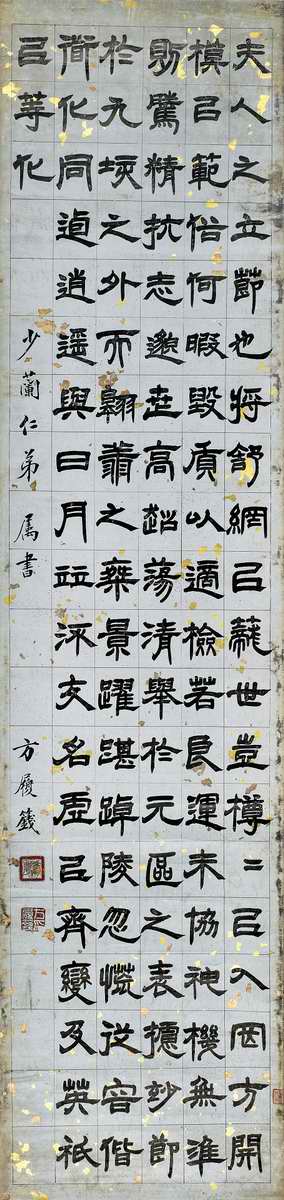 夫人之立節也將舒網㠯籠世豈樽二㠯入罔方開
模㠯範俗何暇毀質以適檢若良運未協神機無準
則騰精抗志邈世高超蕩清舉於元區之表攄妙節
於九垓之外而翱翔之椉景躍踸踔陵忽慌從容偕
衟化同逌逍遥與日月竝流交名虛㠯齊變及英祇
㠯等化
少蘭仁弟屬書
方履籛